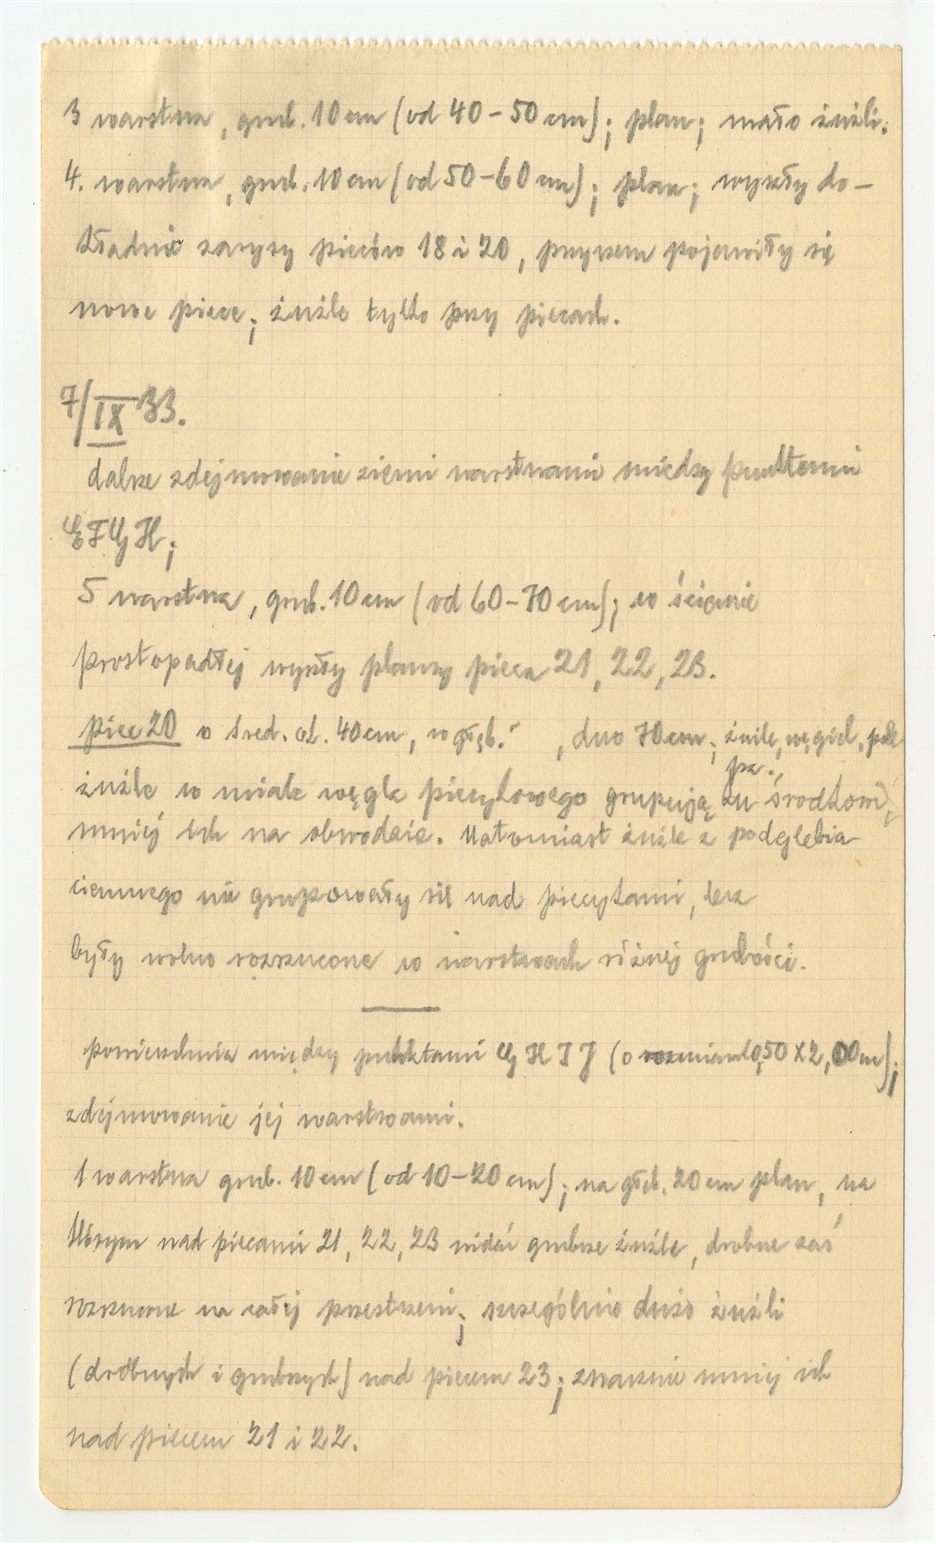 3 warstwa, grub. 10 cm (od 40-50 cm); plan; mało żużli.
4. warstwa, grub. 10 cm (od 50-60 cm); plan; wyszły do-
kładnie zarysy pieców 18 i 20, przyczem pojawiły się
nowe piece; żużle tylko przy piecach.
7/IX 33.
dalsze zdejmowanie ziemi warstwami między punktami
EFGH;
5 warstwa, grub. 10 cm (od 60-70 cm); w ścianie
prostopadłej wyszły planzy pieca 21, 22, 23.
piec 20 o śred. ok. 40 cm, w głęb. , dno 70 cm; żużle, węgiel, pol
prz.,
żużle w miale węgla piecykowego grupują ku środkowi,
mniej ich na obwodzie. Natomiast żużle z podglebia
ciemnego nie grupowały się nad piecykami, lecz
były wolno rozrzucone w warstwach różnej grubości.
powierzchnia między punktami G H I J (o rozmiarach 0,50 X 2,00 m);
zdejmowanie jej warstwami.
1 warstwa grub. 10 cm (od 10-20 cm); na głęb. 20 cm plan, na
którym nad piecami 21, 22, 23 widać grubsze żużle, drobne zaś
rozrzucone na całej przestrzeni; szczególnie dużo żużli
(drobnych i grubszych) nad piecem 23; znacznie mniej ich
nad piecem 21 i 22.